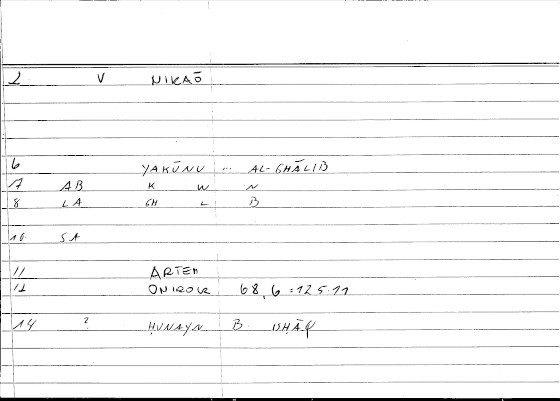 2 V NIKAŌ
6 YAKŪNU ... AL-GHĀLIB
7 AB K W N
8 LA GH L B
10 SA
11 ARTEM
12 ONIROCR 68,6 = 125.11
14 ? ḤUNAYN B. ISḤĀQ